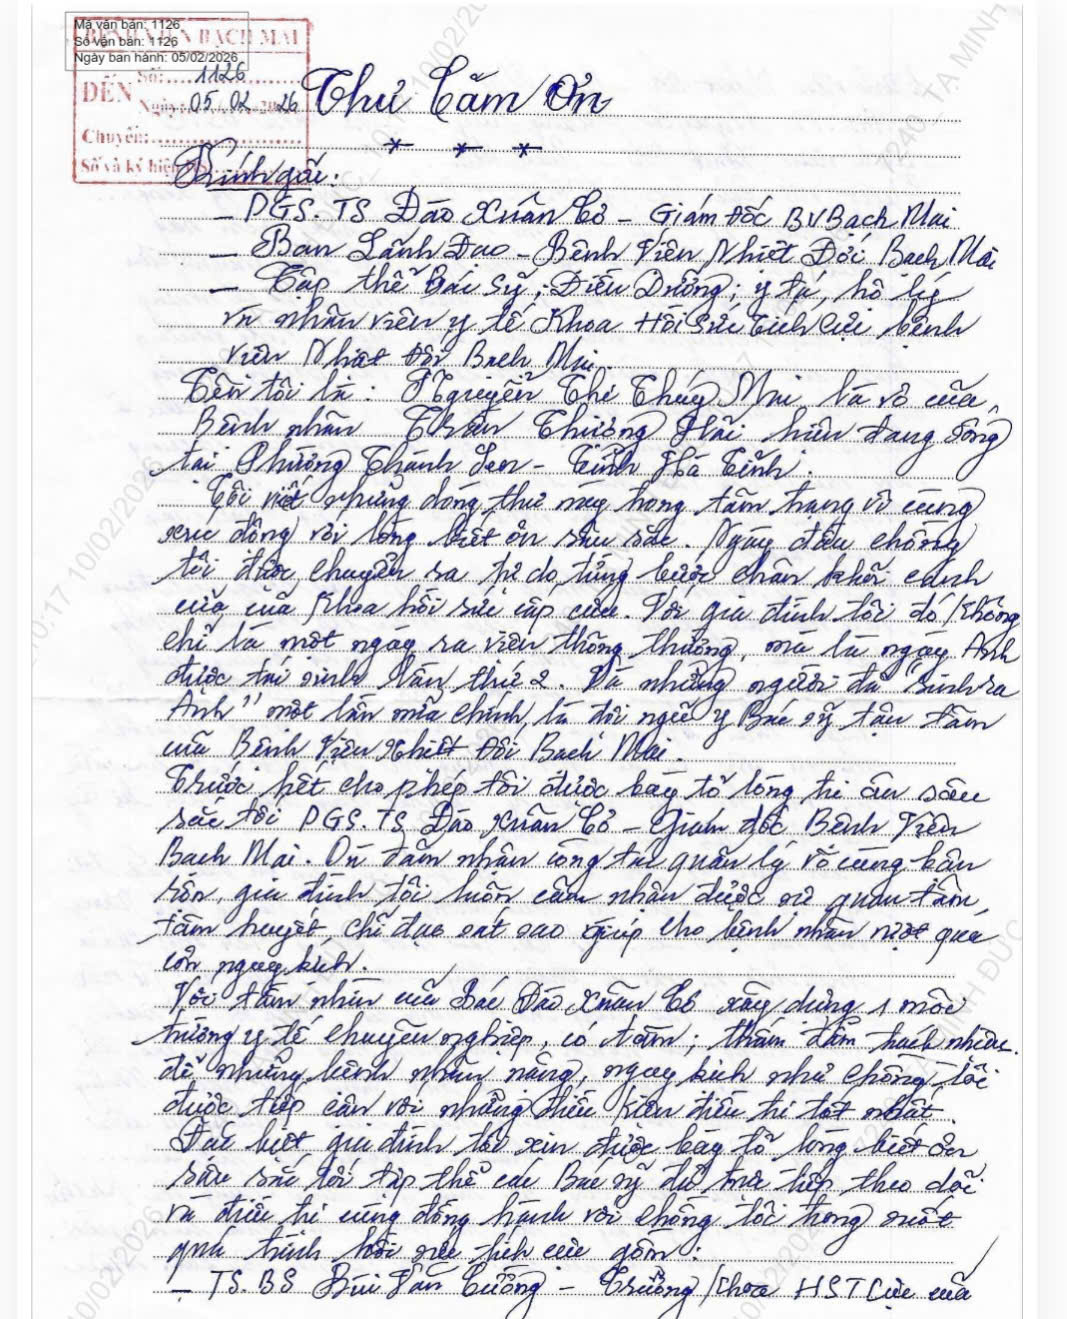 Mã văn bản: 1126
Số văn bản: 1126
Ngày ban hành: 05/02/2026
BỆNH VIỆN BẠCH MAI
ĐẾN
Số: 1126
Ngày: 05.02.2026
Chuyển:
Số và ký hiệu
Thư Cảm Ơn
Kính gửi:
- PGS.TS Đào Xuân Cơ - Giám đốc BV Bạch Mai
- Ban Lãnh Đạo - Bệnh Viện Nhiệt Đới Bạch Mai
- Tập thể Bác Sỹ, Điều Dưỡng; y tá, hộ lý
và nhân viên y tế Khoa Hồi sức tích cực bệnh
viện Nhiệt đới Bạch Mai.
Tên tôi là: Nguyễn Thị Thúy là vợ của
Bệnh nhân Trần Thương Hải hiện đang sống
tại Phường Thành Sen - Tỉnh Hà Tĩnh.
Tôi viết những dòng thư này trong tâm trạng vô cùng
xúc động với lòng biết ơn sâu sắc. Ngày đầu chồng
tôi được chuyển ra tự do từng bước chân khỏi cánh
cửa của khoa hồi sức cấp cứu. Với gia đình tôi đó không
chỉ là một ngày ra viện thông thường, mà là ngày Anh
được tái sinh lần thứ 2. Và những người đã "sinh ra
Anh" một lần nữa chính là đội ngũ y Bác sỹ tận tâm
của Bệnh Viện Nhiệt đới Bạch Mai.
Trước hết cho phép tôi được bày tỏ lòng tri ân sâu
sắc tới PGS.TS Đào Xuân Cơ - Giám đốc Bệnh Viện
Bạch Mai. Dù đảm nhận công tác quản lý vô cùng bận
rộn, gia đình tôi luôn cảm nhận được sự quan tâm,
tâm huyết chỉ đạo sát sao giúp cho bệnh nhân vượt qua
cơn nguy kịch.
Với tầm nhìn của bác Đào Xuân Cơ xây dựng 1 môi
trường y tế chuyên nghiệp, có tâm; thấm đẫm trách nhiệm.
để những bệnh nhân nặng, nguy kịch như chồng tôi
được tiếp cận với những điều kiện điều trị tốt nhất
Đặc biệt gia đình tôi xin được bày tỏ lòng biết ơn
sâu sắc tới tập thể các Bác sỹ đã trực tiếp theo dõi
và điều trị cùng đồng hành với chồng tôi trong suốt
quá trình hồi sức tích cực gồm:
- TS.BS Bùi Văn Cường - Trưởng Khoa HST Cực của